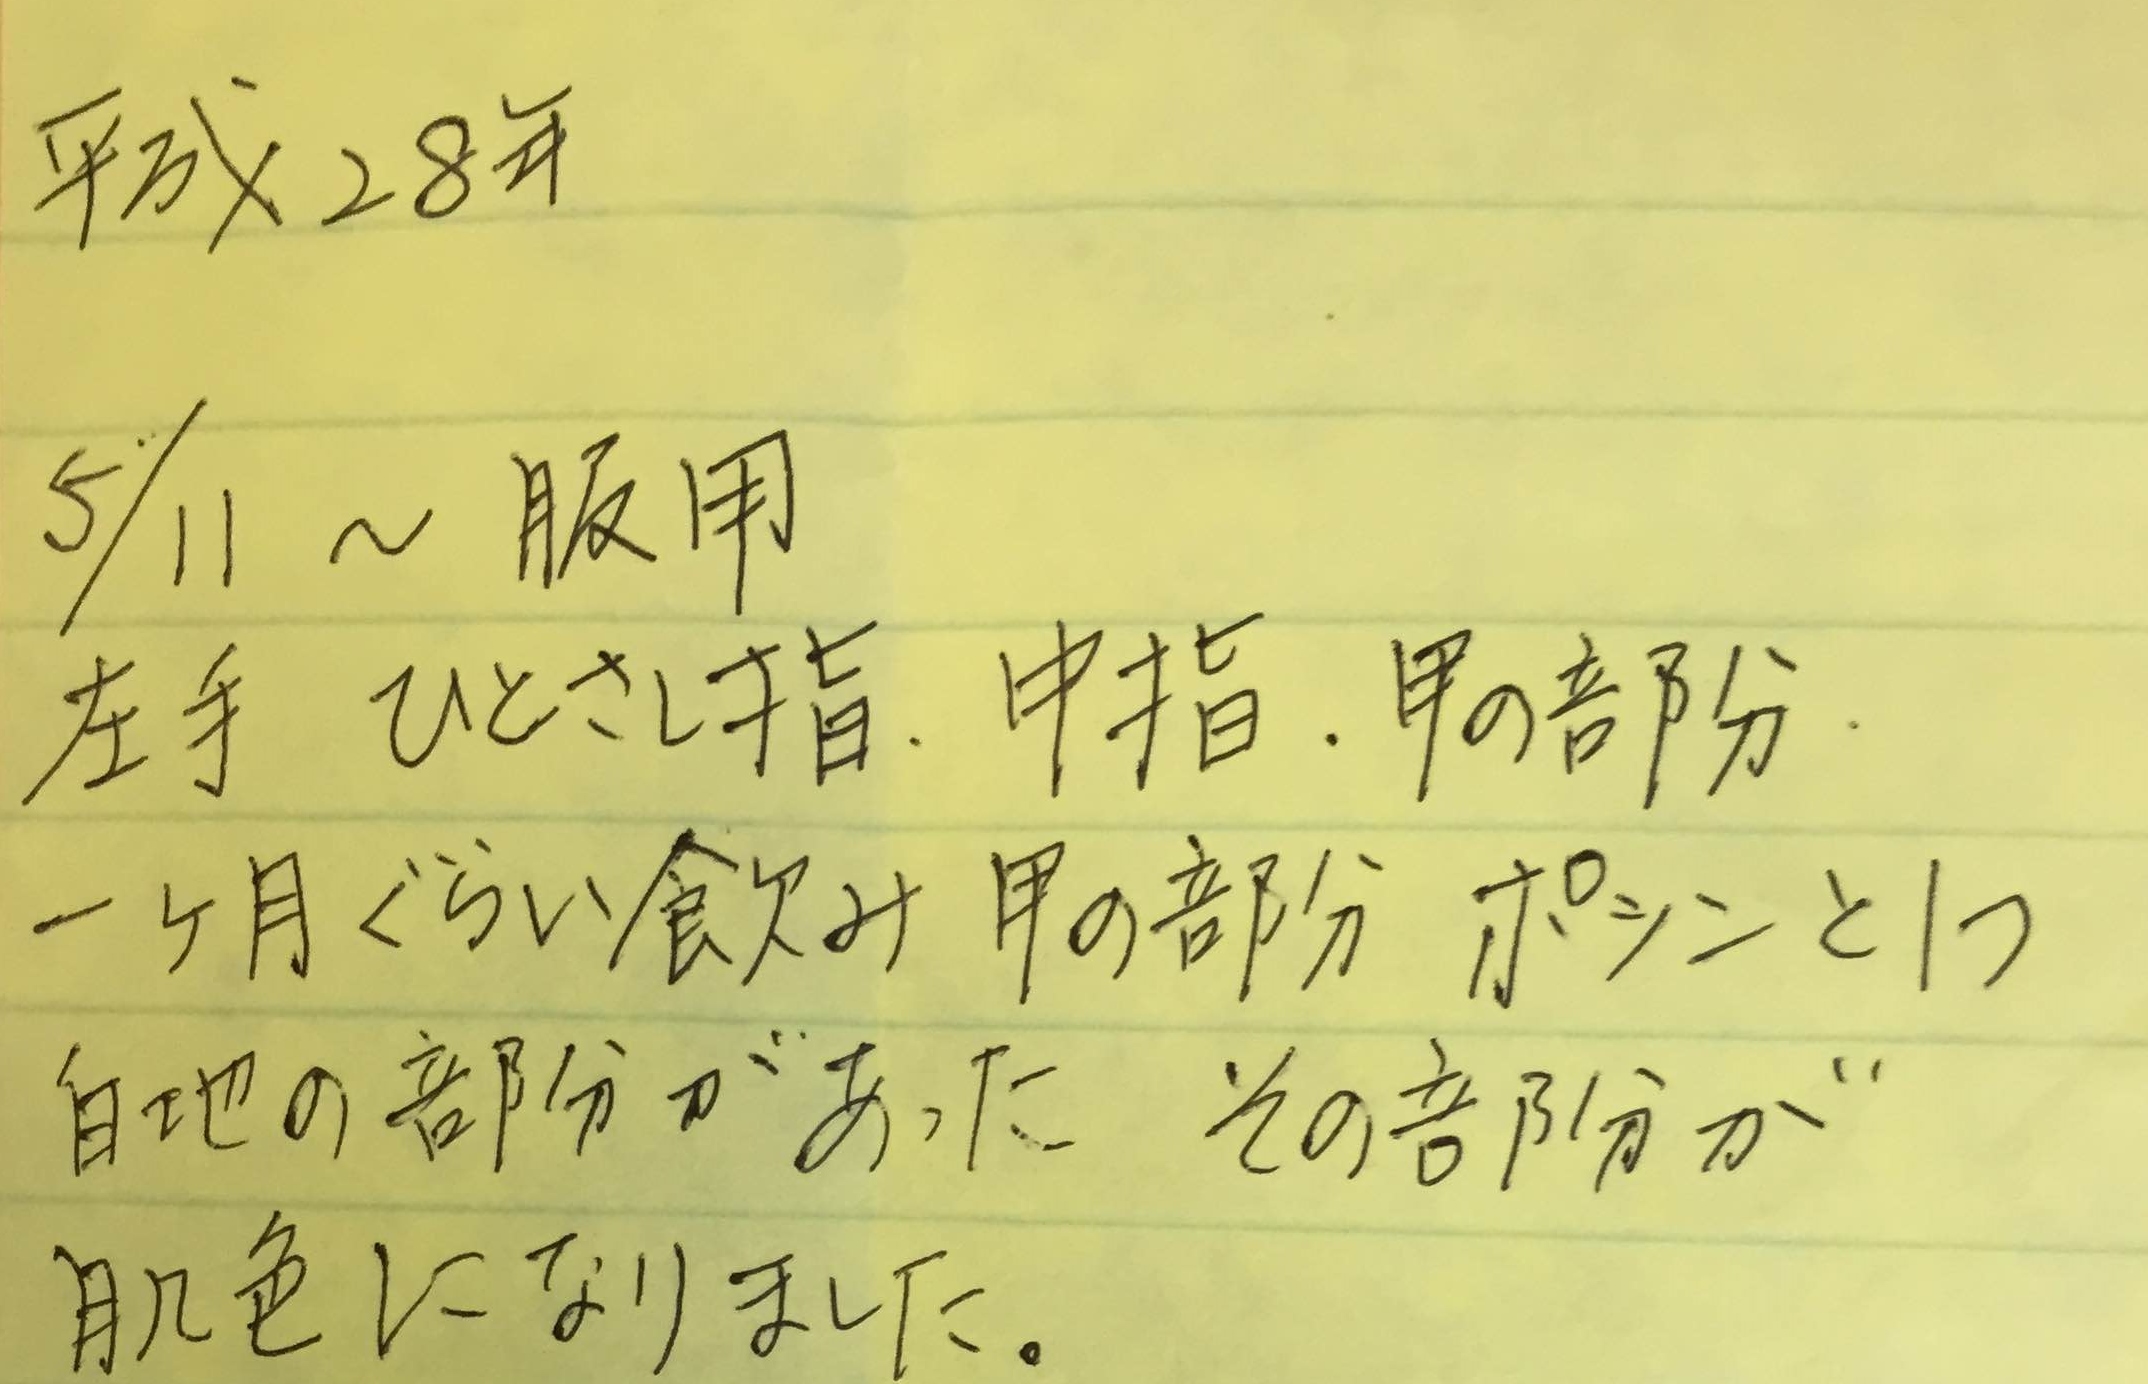 平成28年
5/11 ~ 服用
左手 ひとさし指. 中指. 甲の部分.
一ヶ月ぐらい飲み 甲の部分 ポツンと1つ
白地の部分があった その部分が
肌色になりました。